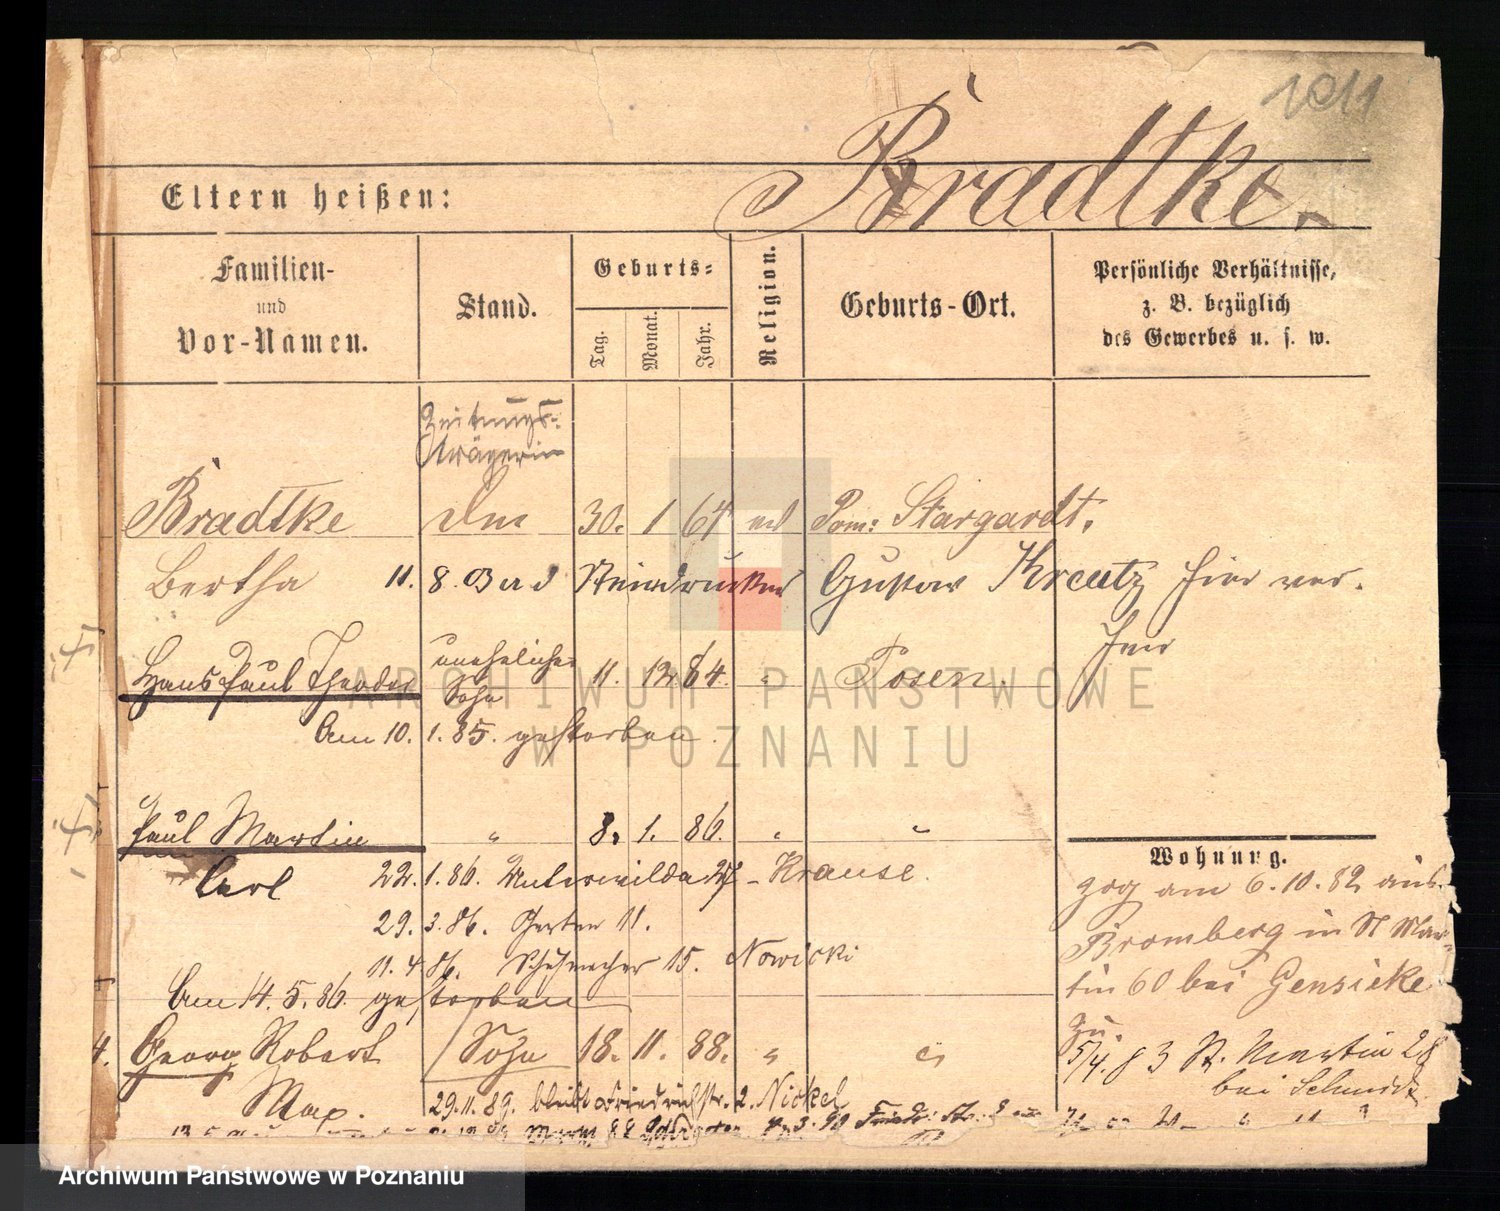 1011
Bradtke.
Eltern heißen:
Familien-
und
Vor-Namen.
Stand.
Geburts-
Tag.
Monat.
Jahr.
Religion.
Geburts-Ort.
Persönliche Verhältnisse,
z. B. bezüglich
des Gewerbes u. s. w.
Zeitungs-
trägerin
Bradtke 30. 1 64 Pom: Stargardt.
Bertha 11. 8. Steindrucker Gustav Kreutz hier
Hans Paul Theodor unehelicher Sohn 11. 12. 84. " Posen.
Am 10. 1. 85. gestorben.
Paul Martin " 8. 1. 86. " "
Carl 22. 1. 86. Unterwilda - Krause.
29. 3. 86. Garten 11.
11. 4. 86. Schuhmacher 15. Nowicki
Am 14. 5. 86. gestorben
4. Georg Robert Sohn 18. 11. 88. " "
Max. 29. 11. 89. bleibt Friedrichstr. 2. Nickel
Wohnung.
zog am 6. 10. 82 aus
Bromberg in St Mar-
tin 60 bei Gensicke
zu
5/4. 83 St. Martin 28
bei Schmidt
ARCHIWUM PAŃSTWOWE
W POZNANIU
Archiwum Państwowe w Poznaniu